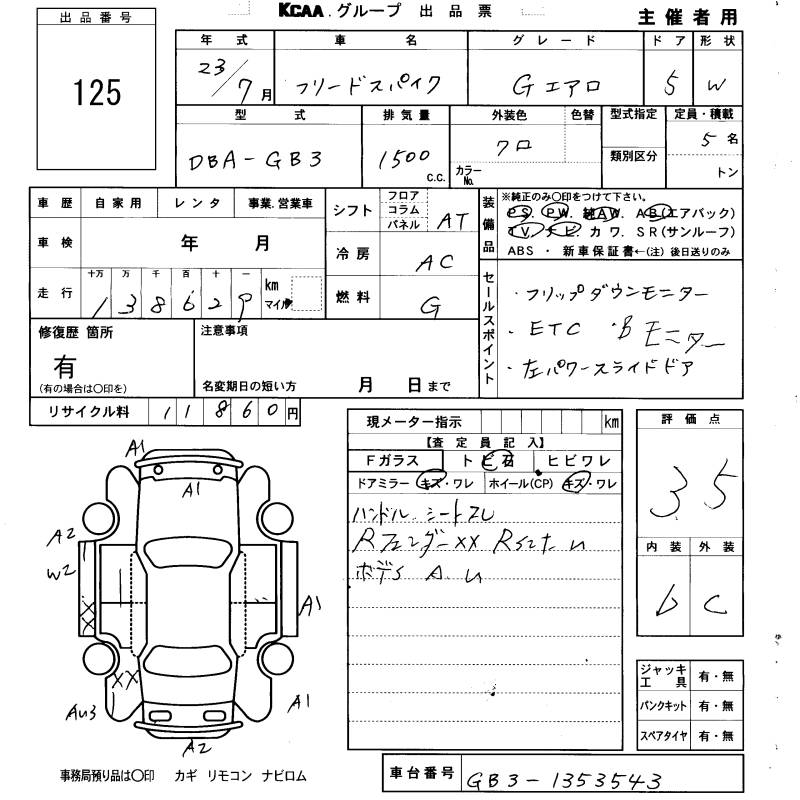 KCAA.グループ 出品票
主催者用
出品番号
125
年式 車名 グレード ドア 形状
23/7月 フリードスパイク Gエアロ 5 W
型式 排気量 外装色 色替 型式指定 定員・積載
DBA-GB3 1500 c.c. クロ カラーNo. 類別区分 5名
トン
車歴 自家用 レンタ 事業.営業車
車検 年 月
走行 十万 万 千 百 十 一 km マイル
138629
シフト フロア コラム パネル AT
冷房 AC
燃料 G
装備品 ※純正のみ○印をつけて下さい。
PS. PW. 純AW. AB(エアバック)
TV. ナビ. カワ. SR(サンルーフ)
ABS ・ 新車保証書←(注)後日送りのみ
セールスポイント
・フリップダウンモニター
・ETC ・Bモニター
・左パワースライドドア
修復歴 箇所
有
(有の場合は○印を)
注意事項
名変期日の短い方 月 日まで
リサイクル料 11860円
現メーター指示 km
【査定員記入】
Fガラス トビ石 ヒビワレ
ドアミラー キズ・ワレ ホイール(CP) キズ・ワレ
ハンドル.シートスレ
Rフェンダーxx
ボデS A.U
評価点
35
内装 外装
b C
ジャッキ工具 有・無
パンクキット 有・無
スペアタイヤ 有・無
A1
A1
A2
W2
XX
A1
XX
AU3
A1
A2
事務局預り品は○印 カギ リモコン ナビロム
車台番号 GB3-1353543